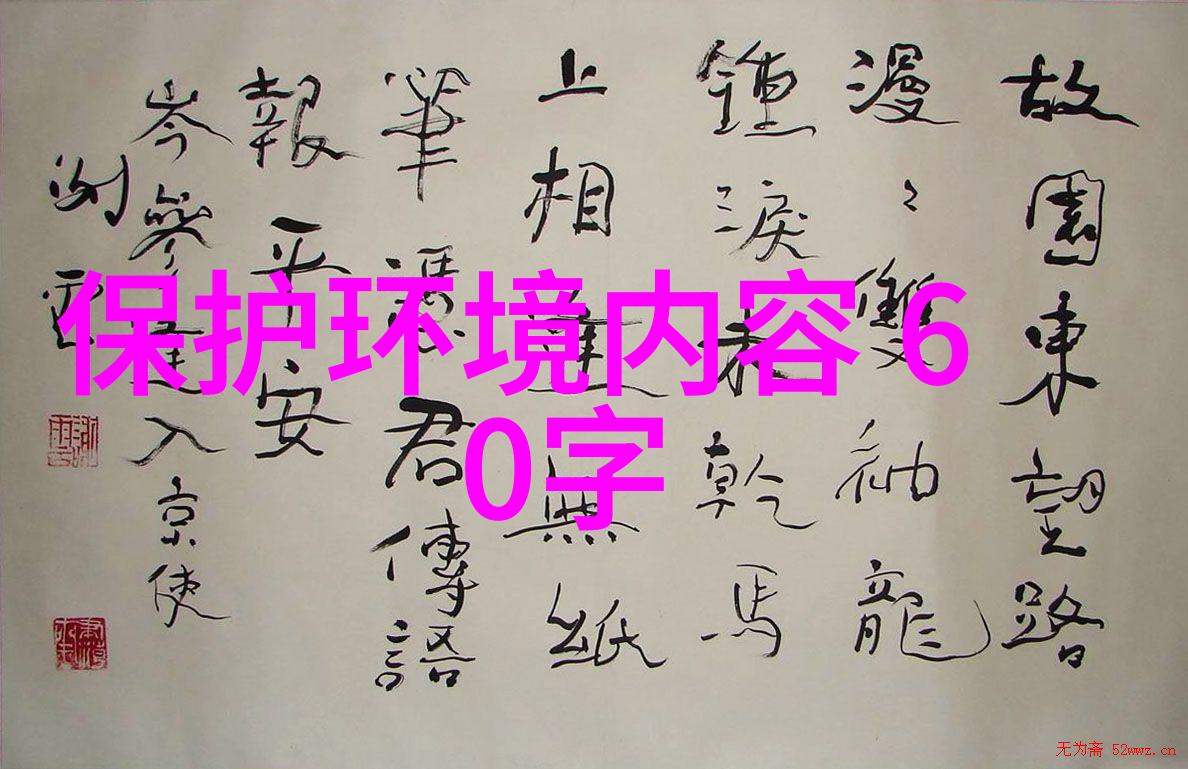 保护环境内容 6
0字
故園東望路
漫〻雙袖龍
鍾淚未乾馬
上相逢無紙
筆憑君傳語
報平安
岑參逢入京使
无为斋 52wwz.cn